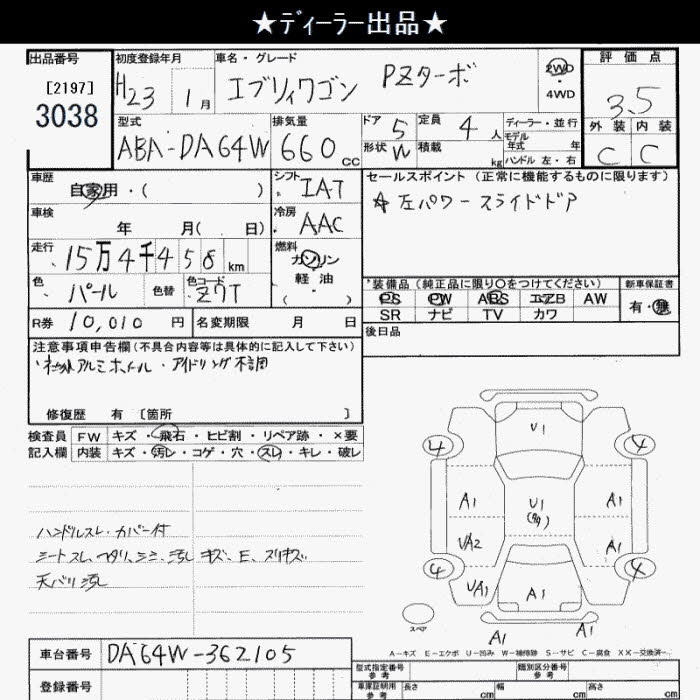 ★ディーラー出品★
出品番号 [2197] 3038
初度登録年月 H23 1月
車名・グレード エブリィワゴン PZターボ
2WD ・ 4WD
評価点 3.5
外装 内装
C C
型式 ABA-DA64W
排気量 660 cc
ドア 5 定員 4 人
形状 W 積載 kg
ディーラー・並行
モデル年式 年
ハンドル 左・右
車歴 自家用・( )
シフト IAT
車検 年 月( 日)
冷房 AAC
走行 15万4千458 km
燃料 ガソリン 軽油 ( )
色 パール 色替 色コード Z7T
R券 10,010 円 名変期限 月 日
セールスポイント (正常に機能するものに限ります)
☆ 左パワースライドドア
装備品 (純正品に限り〇をつけてください) 新車保証書
PS PW ABS エアB AW 有・無
SR ナビ TV カワ
後日品
注意事項申告欄 (不具合内容等は具体的に記入して下さい)
・社外アルミホイール・アイドリング不調
修復歴 有 〔箇所 〕
検査員 FW キズ・飛石・ヒビ割・リペア跡・×要
記入欄 内装 キズ・汚レ・コゲ・穴・スレ・キレ・破レ
ハンドルスレ・カバー付
シートスレ、ヘタリ、シミ、汚レ キズ、E、スリキズ
天バリ汚レ
U1
4 4
A1 U1 A1
(多)
UA2 A1
4 4
UA1 A1
スペア
A1 A1
A－キズ E－エクボ U－凹み W－補修跡 S－サビ C－腐食 XX－交換済
車台番号 DA64W-362105
登録番号
型式指定番号 参考 類別区分番号 参考
車庫証明用 参考 長さ cm 幅 cm 高さ cm